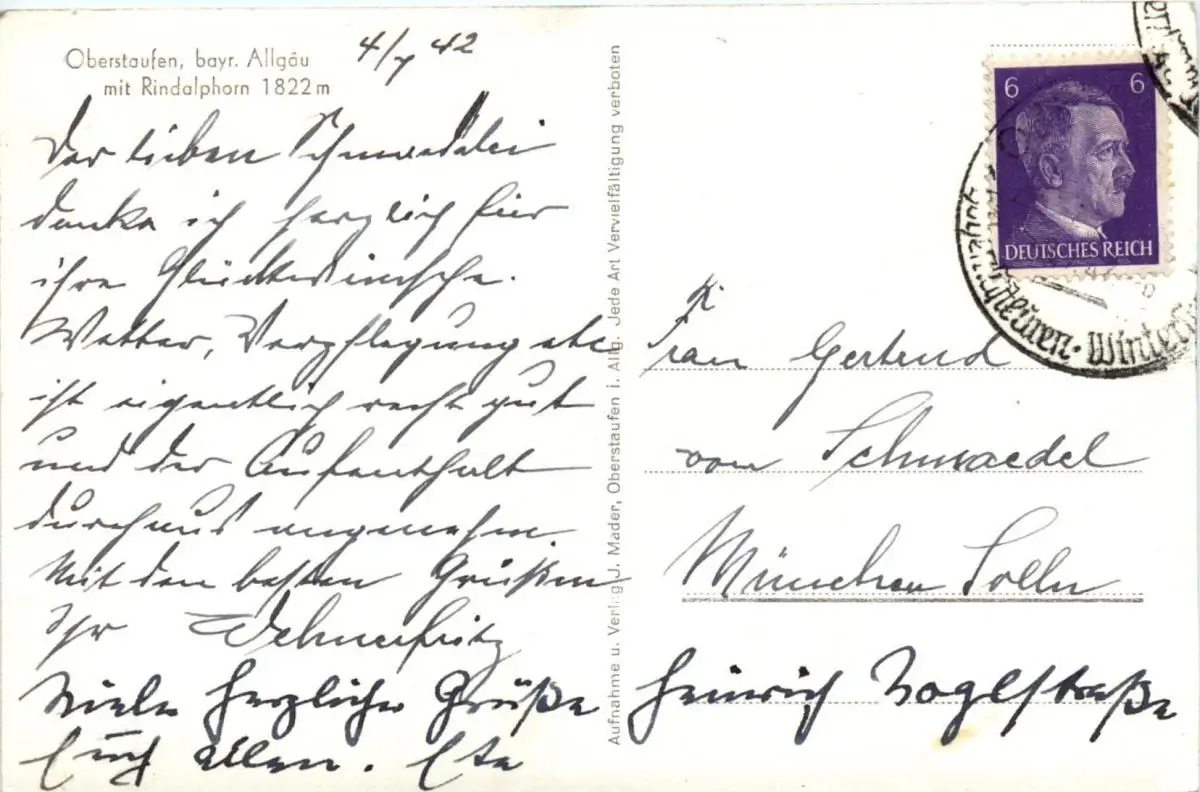 Oberstaufen, bayr. Allgäu
mit Rindalphorn 1822 m
4/7 42
Der lieben Schwaedelei
danke ich herzlich für
ihre Glückwünsche.
Wetter, Verpflegung etc
ist eigentlich recht gut
und der Aufenthalt
durchaus angenehm.
Mit den besten Grüßen
Ihr
Viele herzliche Grüße
Euch allen.
Aufnahme u. Verlag J. Mader, Oberstaufen i. Allg. Jede Art Vervielfältigung verboten
6 6
DEUTSCHES REICH
Winter
Frau Gertrud
von Schwaedel
München Solln
Heinrich Voglstraße